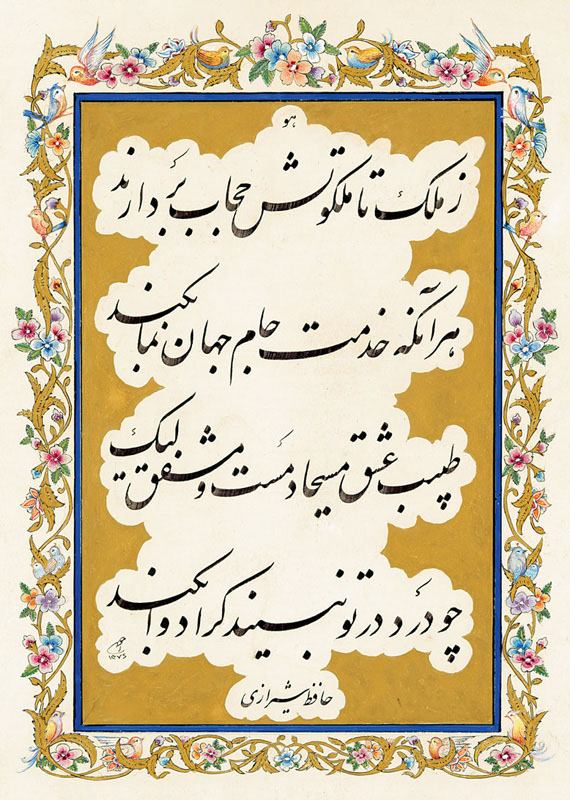 هو
ز ملک تا ملکوتش حجاب بردارند
هر آنکه خدمت جام جهان نما بکند
طبیب عشق مسیحا دمست و مشفق لیک
چو درد در تو نبیند کرا دوا بکند
حافظ شیرازی